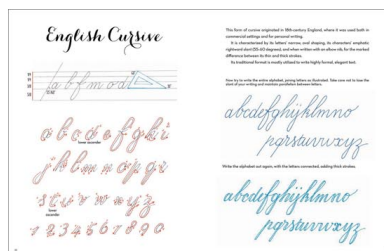 English Cursive
a b f m o d
a b c d e f g h i
lower ascender
j k l m n o p q r
s t u v w x y z
lower
ascender
1 2 3 4 5 6 7 8 9 0
This form of cursive originated in 18th-century England, where it was used both in
commercial settings and for personal writing.
It is characterized by its letters' narrow, oval shaping, its characters' emphatic
rightward slant (55-60 degrees), and when written with an allow nib, for the marked
difference between its thin and thick strokes.
Its traditional format is mostly utilized to write highly formal, elegant text.
Now try to write the entire alphabet, joining letters as illustrated. Take care not to lose the
slant of your writing and maintain parallelism between letters.
abcdefghijklmno
pqrstuvwxyz
Write the alphabet out again, with the letters connected, adding thick strokes.
abcdefghijklmno
pqrstuvwxyz